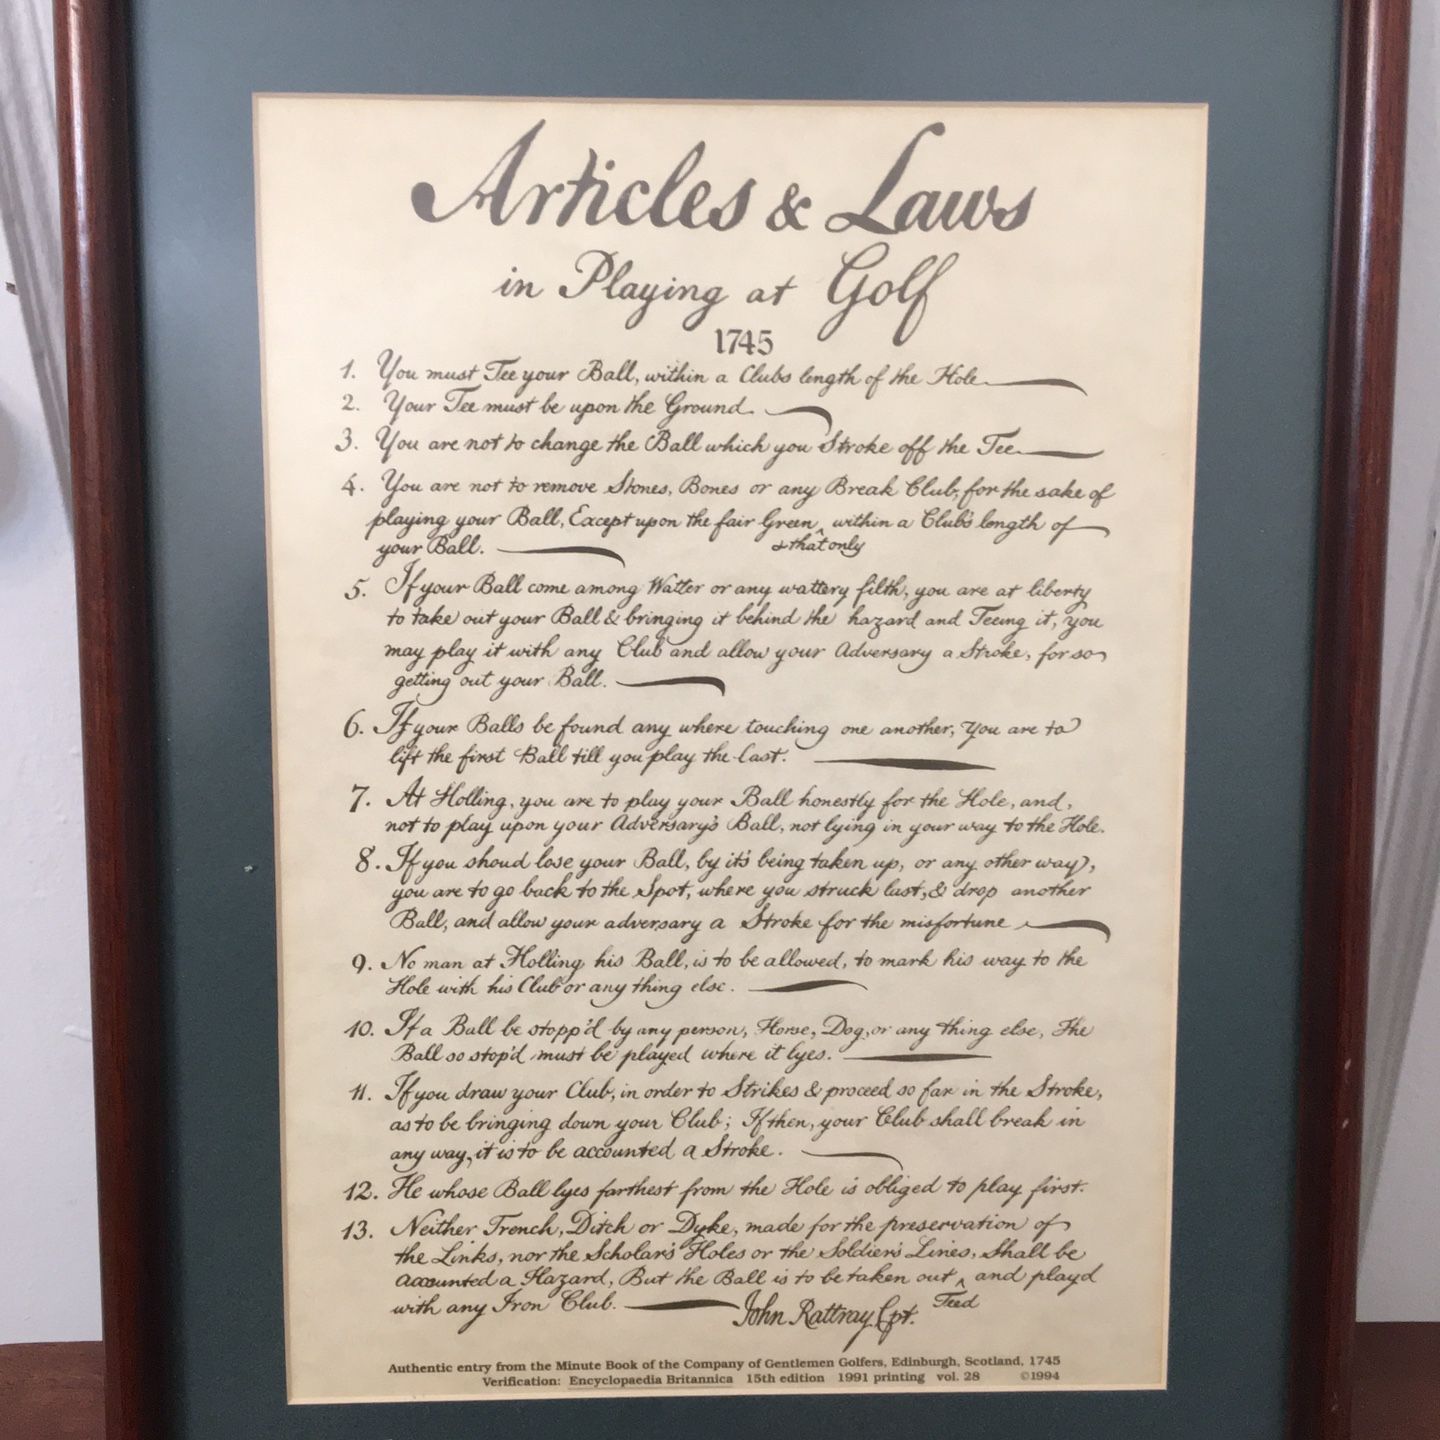 Articles & Laws
in Playing at Golf
1745
1. You must Tee your Ball, within a Clubs length of the Hole
2. Your Tee must be upon the Ground.
3. You are not to change the Ball which you Stroke off the Tee
4. You are not to remove Stones, Bones or any Break Club, for the sake of
playing your Ball, Except upon the fair Green ^ within a Club's length of
& that only
your Ball.
5. If your Ball come among Watter or any wattery filth, you are at liberty
to take out your Ball & bringing it behind the hazard and Teeing it, you
may play it with any Club and allow your Adversary a Stroke, for so
getting out your Ball.
6. If your Balls be found any where touching one another, You are to
lift the first Ball till you play the last.
7. At Holling, you are to play your Ball honestly for the Hole, and,
not to play upon your Adversary's Ball, not lying in your way to the Hole.
8. If you shoud lose your Ball, by it's being taken up, or any other way,
you are to go back to the Spot, where you struck last, & drop another
Ball, and allow your adversary a Stroke for the misfortune
9. No man at Holling his Ball, is to be allowed, to mark his way to the
Hole with his Club or any thing else.
10. If a Ball be stopp'd by any person, Horse, Dog, or any thing else, The
Ball so stop'd must be played where it lyes.
11. If you draw your Club, in order to Strikes & proceed so far in the Stroke,
as to be bringing down your Club; If then, your Club shall break in
any way, it is to be accounted a Stroke.
12. He whose Ball lyes farthest from the Hole is obliged to play first.
13. Neither Trench, Ditch or Dyke, made for the preservation of
the Links, nor the Scholar's Holes or the Soldier's Lines, Shall be
accounted a Hazard, But the Ball is to be taken out ^ and play'd
Teed
with any Iron Club.
John Rattray Cpt.
Authentic entry from the Minute Book of the Company of Gentlemen Golfers, Edinburgh, Scotland, 1745
Verification: Encyclopaedia Britannica 15th edition 1991 printing vol. 28 ©1994